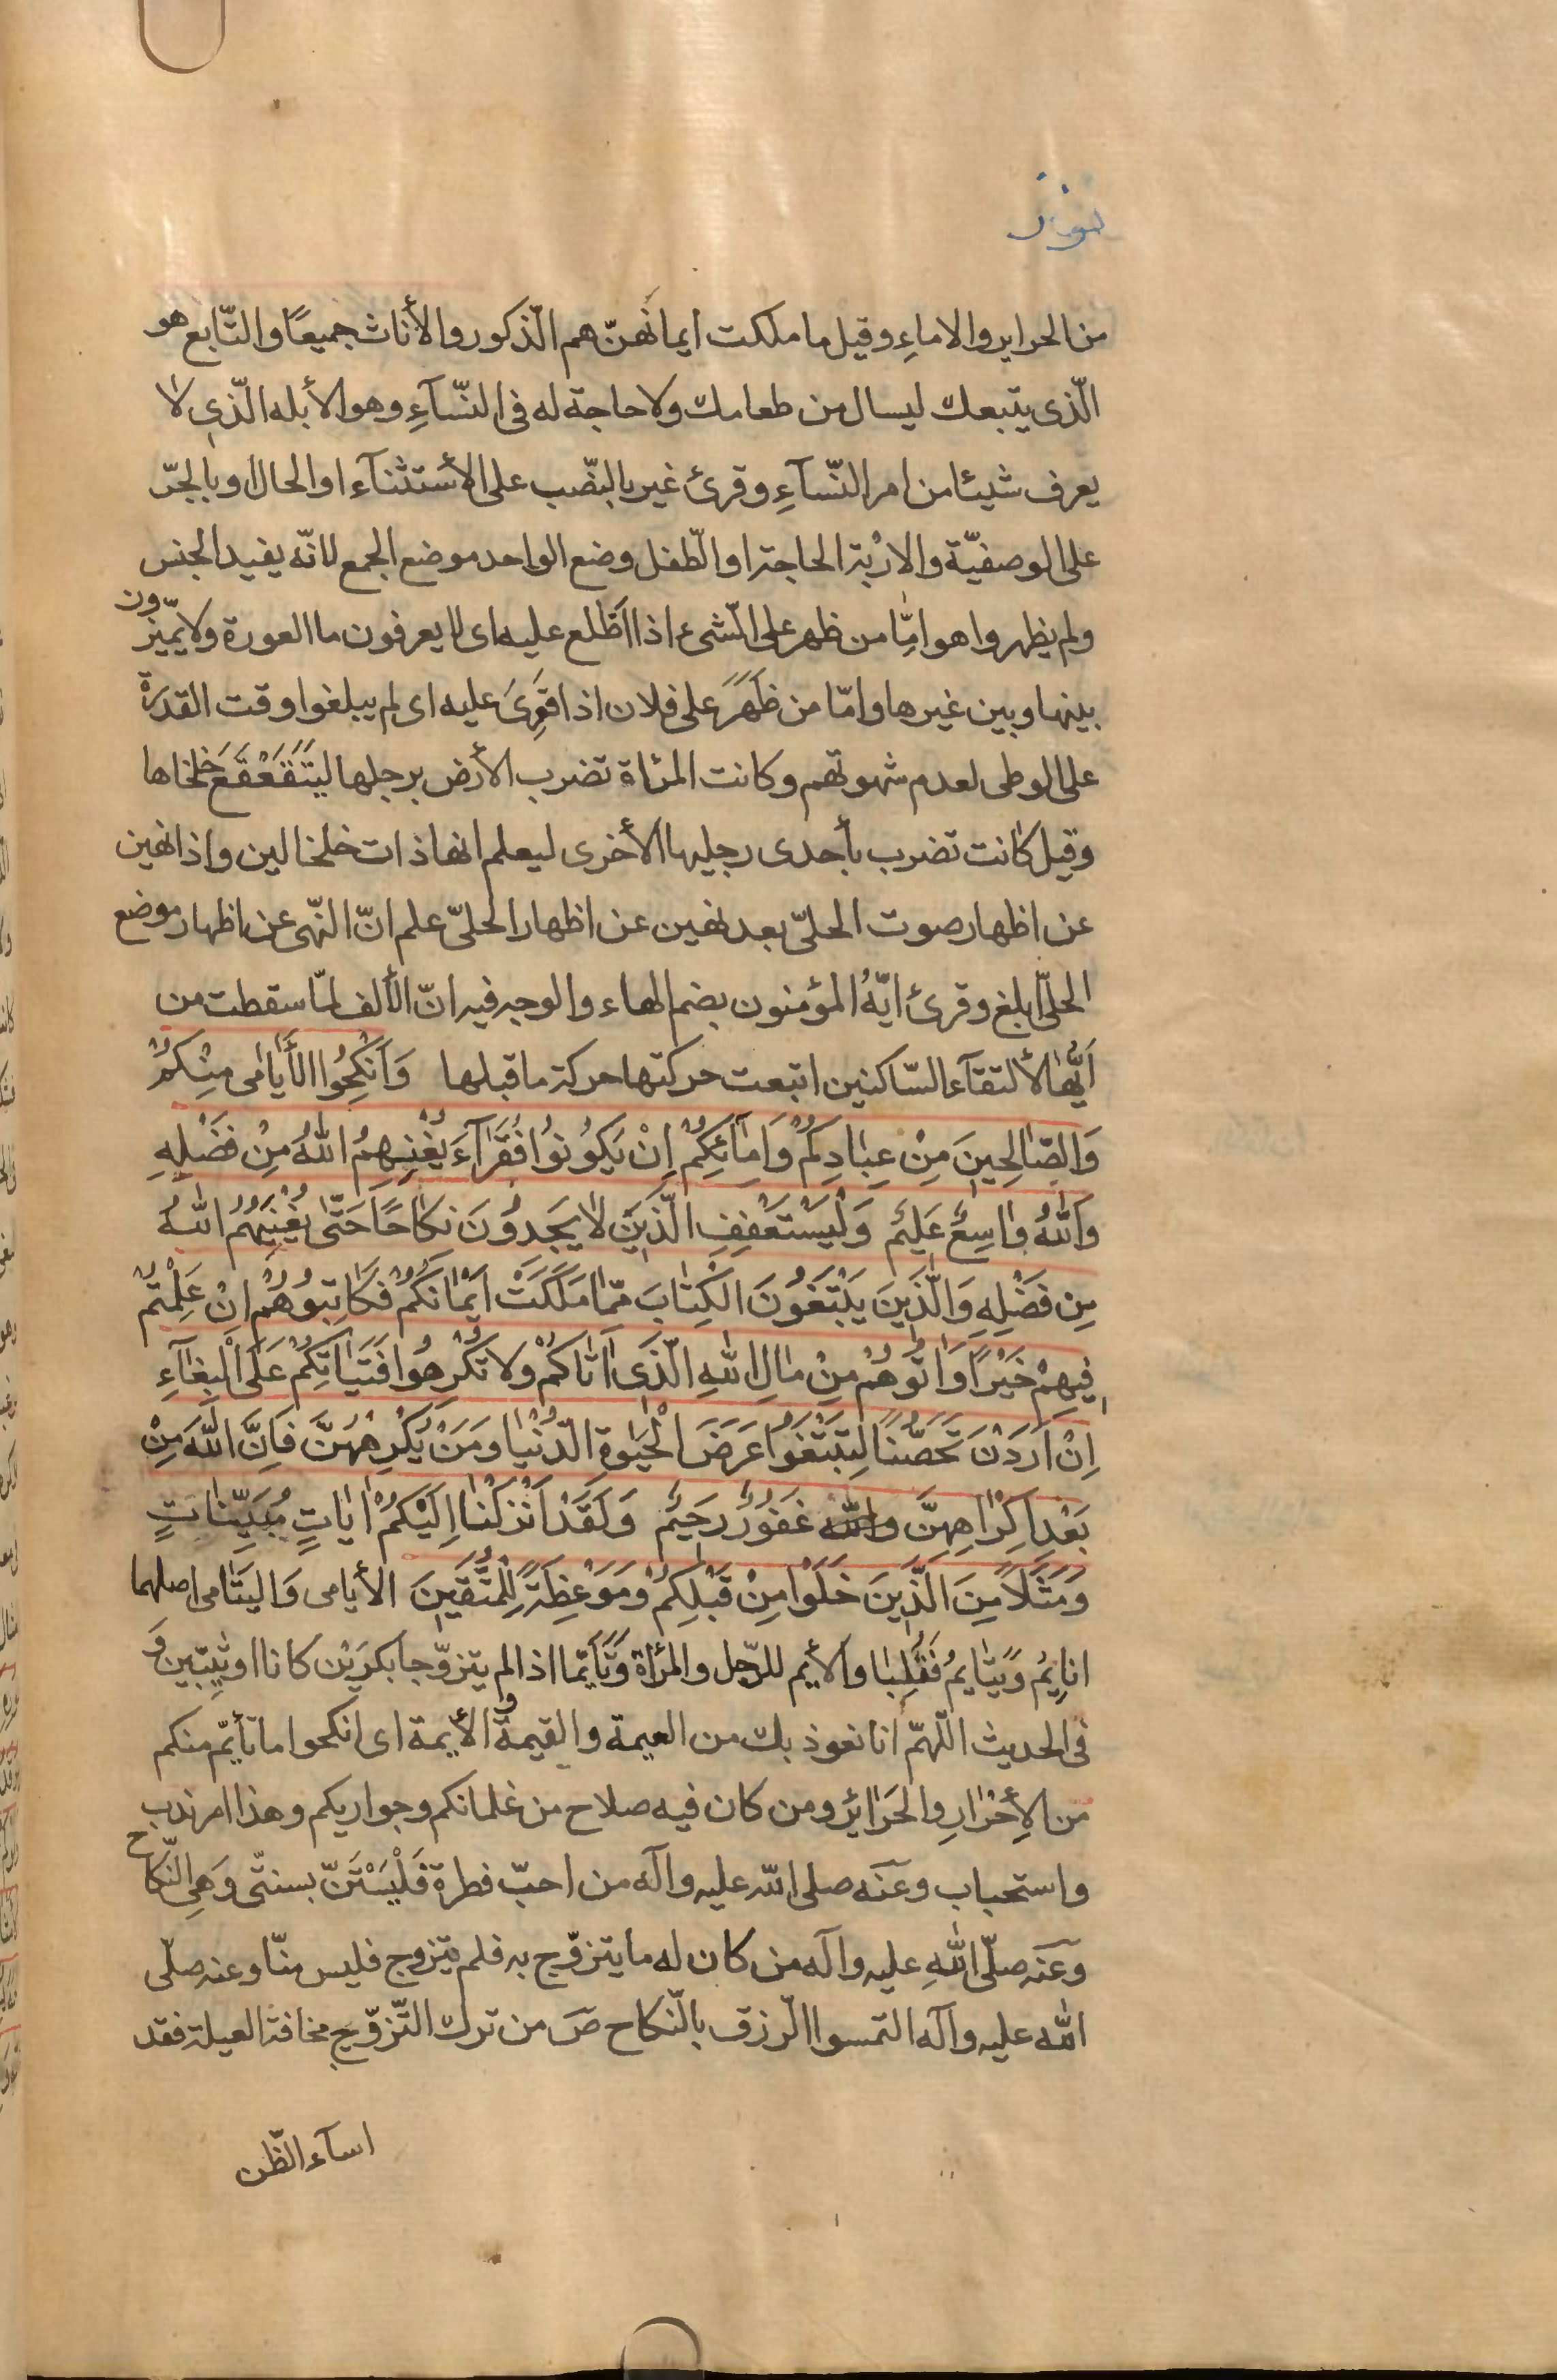 نور
من الحراير والاماءِ وقيل ما ملكت ايمانهنّ هم الّذكور والأناث جميعًا والتّابع هو
الّذى يتبعك ليسال من طعامك ولا حاجة له فى النّسآءِ وهو الأبله الّذى لا
يعرف شيئا من امر النّسآءِ وقرئ غير بالنّصب على الأستثنآء او الحال او بالجرّ
على الوصفيّة والارْبة الحاجة او الّطفل وضع الواحد موضع الجمع لانّه يفيد الجنس
ولم يظهروا هو امّا من ظهر على الّشىء اذا اطّلع عليه اى لا يعرفون ما العورة ولا يميّزون
بينها وبين غيرها وامّا من ظَهَرَ على فلان اذا قَوِىَ عليه اى لم يبلغوا وقت القدرة
على الوطى لعدم شهوتهم وكانت المرٔاة تضرب الأرض برجلها ليَتَقَعْقَعَ خلخاها
وقيل كانت تضرب بأحدى رجليها الأخرى ليعلم انها ذات خلخالين واذا نهين
عن اظهار صوت الحلىّ بعد نهين عن اظهار الحلىّ علم انّ النّهى عن اظهار موضع
الحلىّ ابلغ وقرئ ايّهُ المؤمنون بضم الهاء والوجه فيه انّ الألف لمّا سقطت من
اَيُّها لألتقآء السّاكنين اتبعت حركتها حركة ما قبلها وَاَنْكِحُوا الأَيامى مِنْكُمْ
وَالصّالِحينَ مِنْ عِبادِكُمْ وَاِمآئِكُمْ اِنْ يَكُونُوا فُقَرآءَ يُغْنِهِمُ اللهُ مِنْ فَضْلِهِ
وَاللهُ واسِعٌ عَليمٌ وَلْيَسْتَعْفِفِ الَّذينَ لا يَجِدُونَ نكاحًا حَتّى يُغْنِيَهُمُ اللهُ
مِن فَضْلِهِ وَالَّذينَ يَبْتَغُونَ الْكِتابَ مِمّا مَلَكَتْ اَيْمانُكُمْ فَكاتِبُوهُمْ اِنْ عَلِمْتُمْ
فيهِمْ خَيْرًا وَاتُوهُمْ مِنْ مالِ اللهِ الَّذى اتاكُمْ ولا تُكْرِهُوا فَتَياتِكُمْ عَلَى الْبِغآءِ
اِنْ اَرَدْنَ تَحَصُّنًا لِتَبْتَغُوا عَرَضَ الْحَيوةِ الدُّنْيا ومَنْ يُكْرِهْهُنَّ فَاِنَّ اللهَ مِنْ
بَعْدِ اِكْراهِهِنَّ والله غَفُورٌ رَحيمٌ وَلَقَدْ اَنْزَلْنا اِلَيْكُمْ اياتٍ مُبَيِّناتٍ
وَمَثَلاً مِنَ الَّذينَ خَلَوْا مِنْ قَبْلِكُمْ ومَوْعِظَةً لِلْمُتَّقينَ الأيامى وَاليَتامى اصلهما
اَنايِمُ وَيَتايِمُ فَقُلِبا والأيم للرّجل والمرٔاة وَتَأَيَّما اذا لم يتزوّجا بكرَيْن كانا او ثيّبين وَ
فى الحديث اللّهمّ انا نعوذ بك من العيمة والقيمة والأيمة اى انكحوا ما تأيّم منكم
من الأحْرارِ والحَرائِرِ ومن كان فيه صلاح من غلمانكم وجواريكم وهذا امر ندب
واستحباب وعَنه صلى الله عليه وآله من احبّ فطرة فَلْيَسْتَنّ بسنتّى وَهِى النّكاح
وعَنه صلّى اللهِ عليه وآله من كان له ما يتزوّج به فلم يتزوج فليس منّا وعنه صلّى
الله عليه وآله التمسوا الّرزق بالّنكاح صَ من ترك التّزوّيج مخافة العيلة فقد
اسآء الظّن